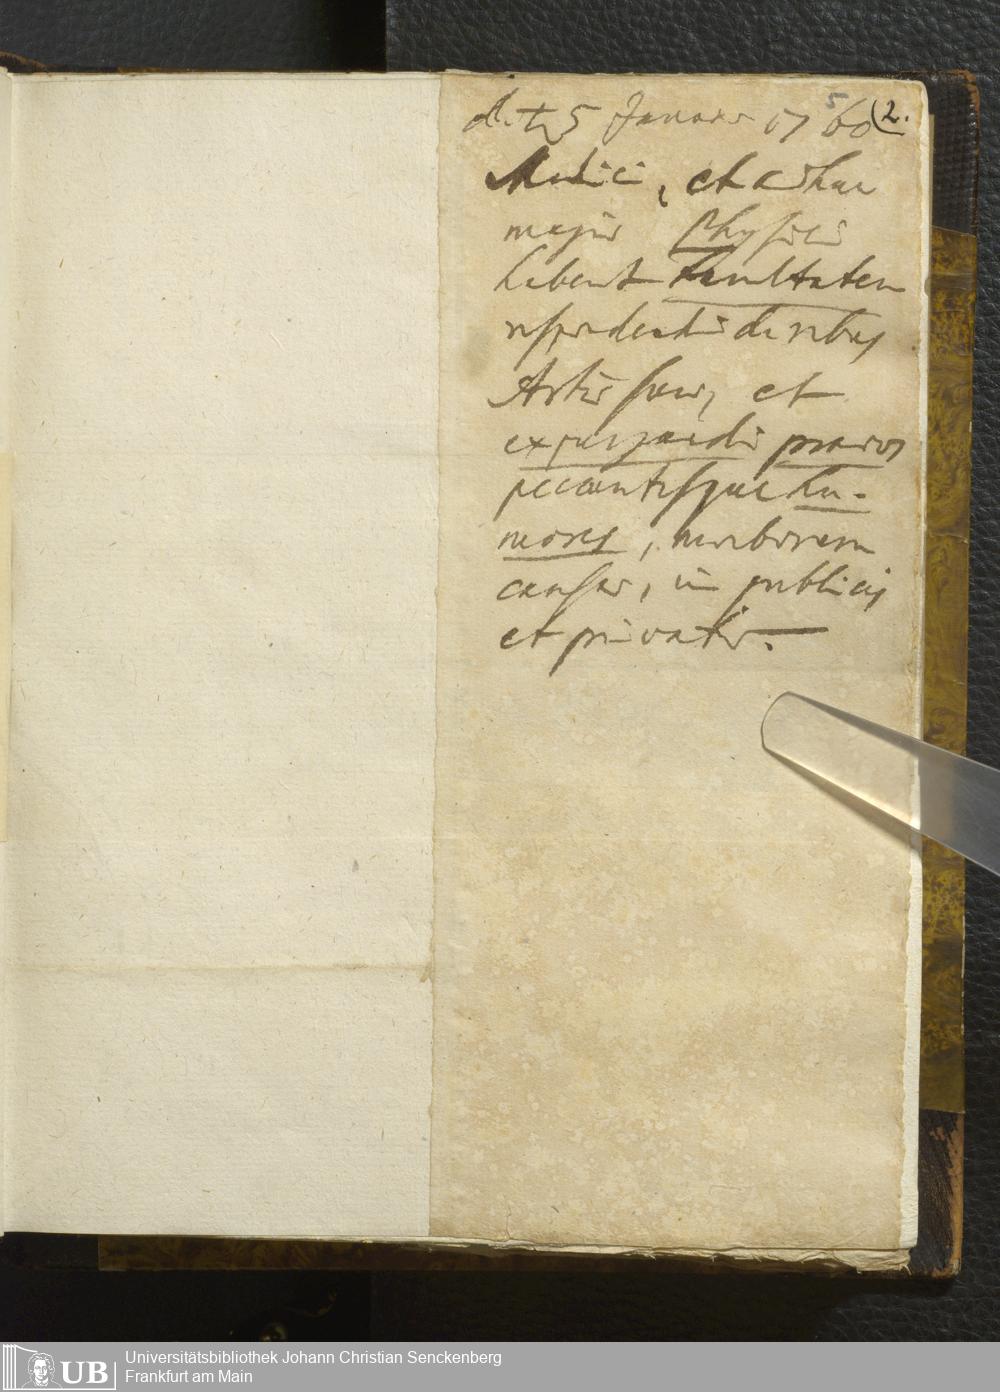 d. ♄ 5 Januar 1760 (2.
5
Medici, et adhuc
magis Physici
habent facultatem
respondendi de rebus
Artis suae, et
expurgandi pravos
peccantesque hu-
mores, morborum
causas, in publicis
et privatis.
UB
Universitätsbibliothek Johann Christian Senckenberg
Frankfurt am Main